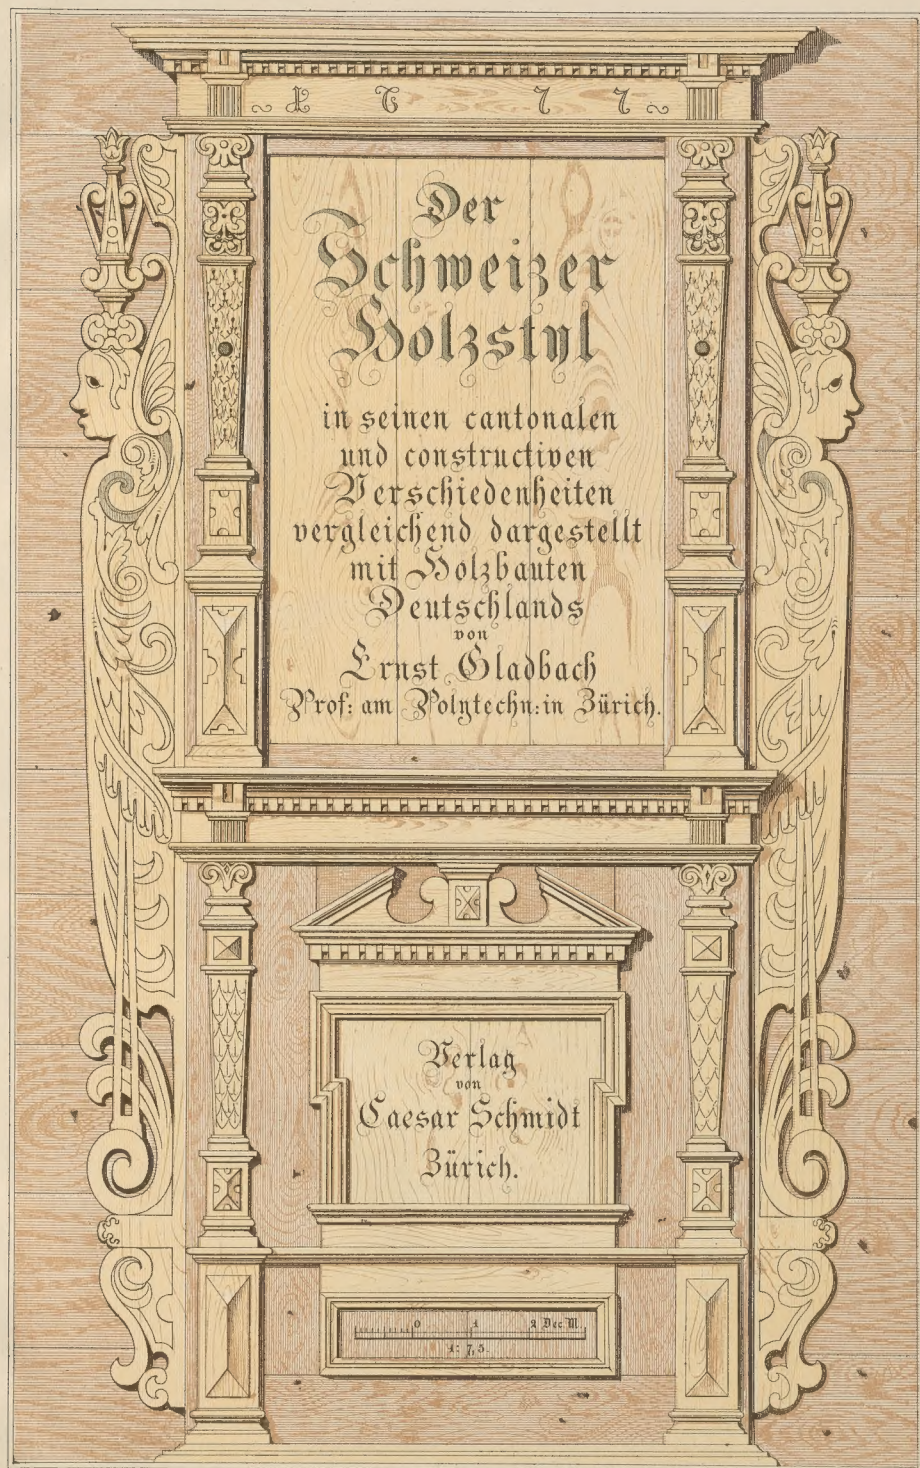 1 6 7 7
Der
Schweizer
Holzstyl
in seinen cantonalen
und constructiven
Verschiedenheiten
vergleichend dargestellt
mit Holzbauten
Deutschlands
von
Ernst Gladbach
Prof: am Polytechn: in Zürich.
Verlag
von
Caesar Schmidt
Zürich.
0 1 2 Dec M.
1: 7,5.